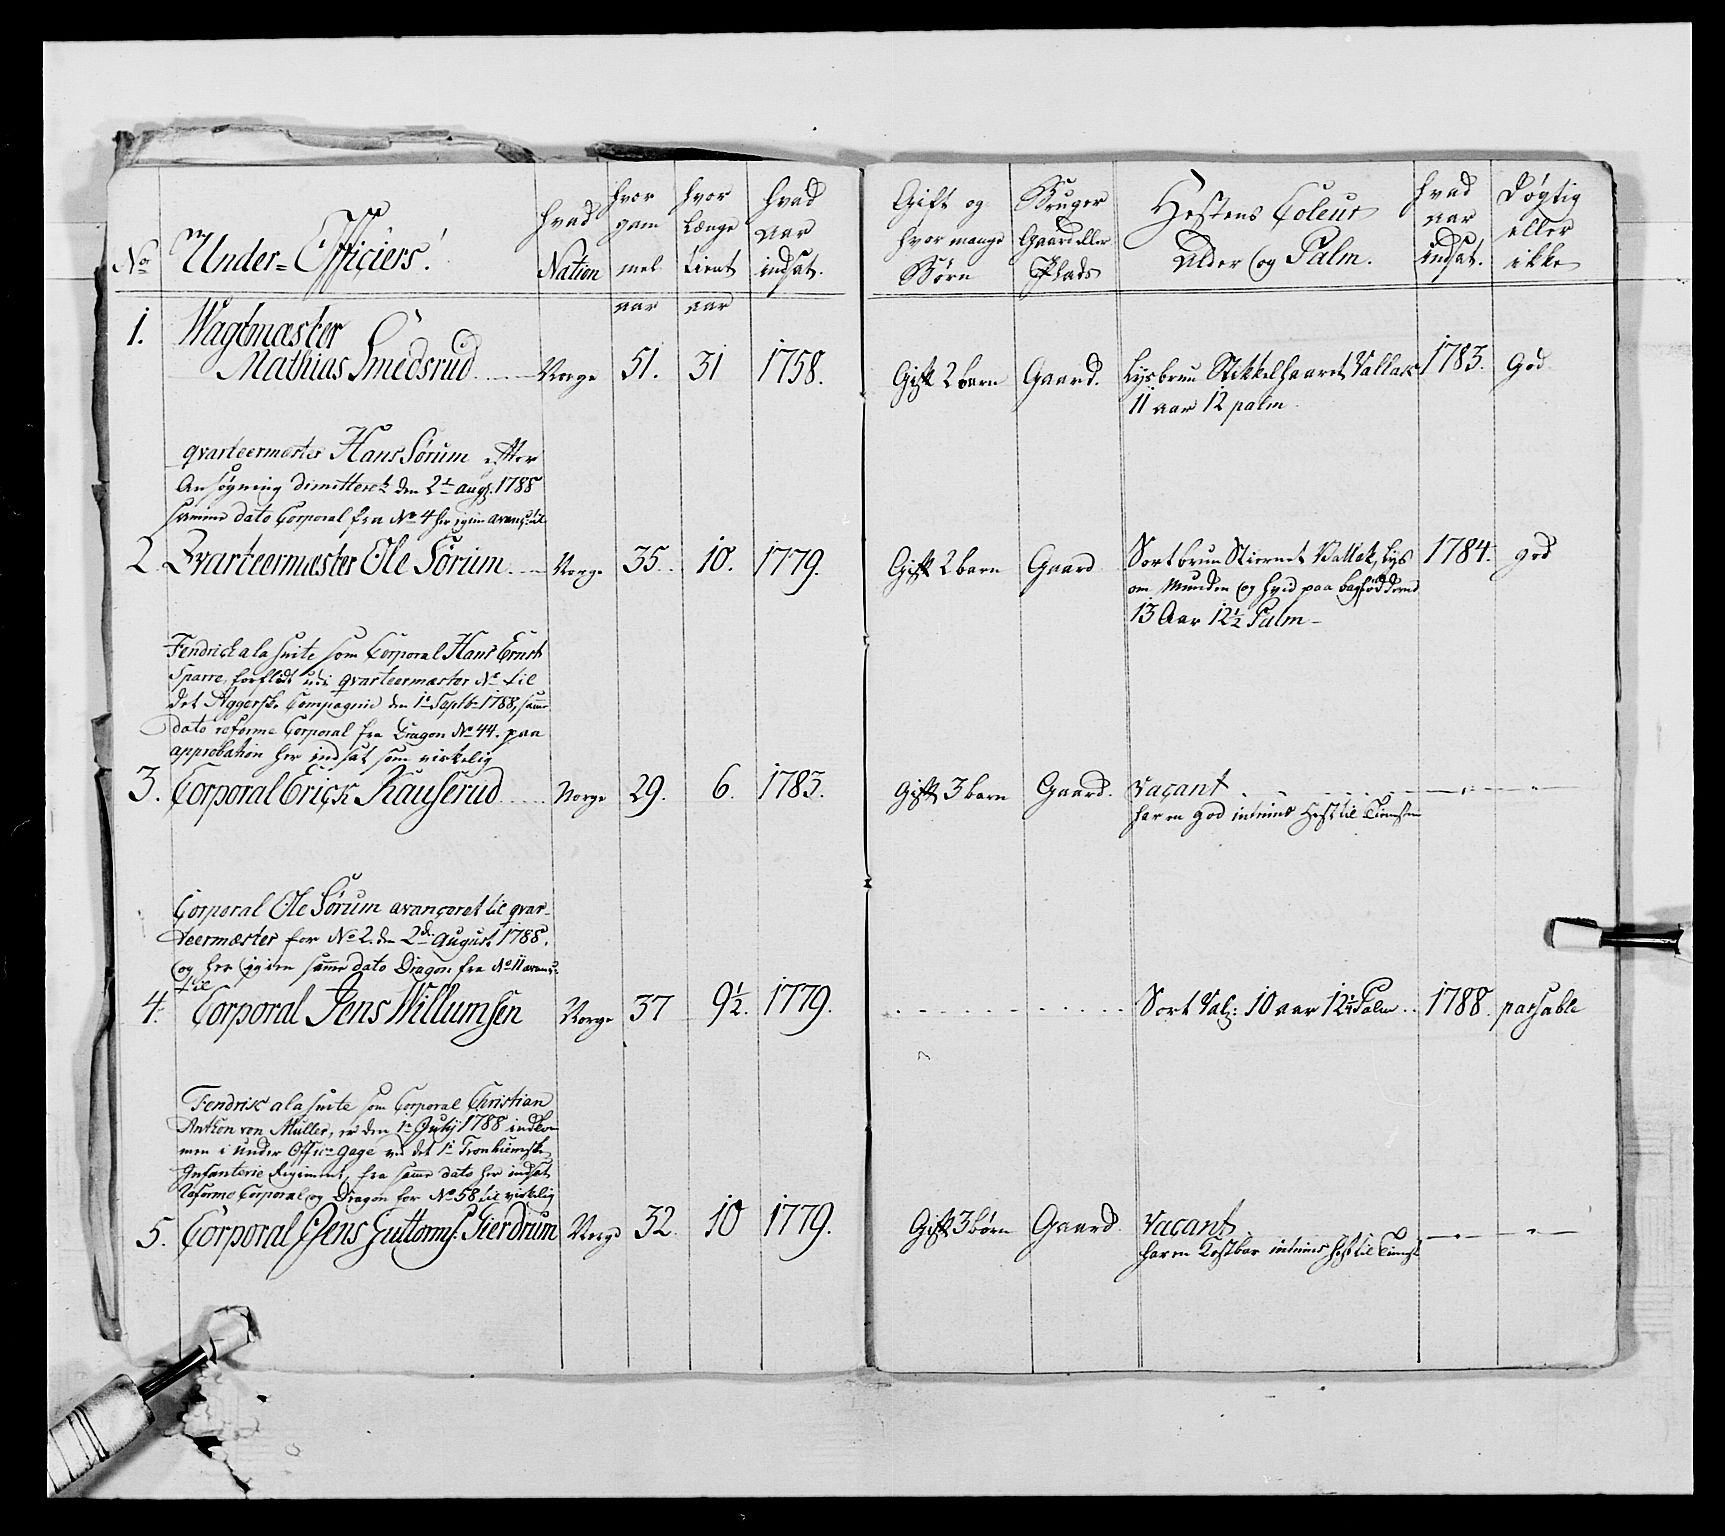 No
Under-Officiers!
hvad Nation
hvor gam mel aar
hvor længe tient aar
hvad aar indsat.
Gift og hvor mange Børn
Bruger Gaard eller Plads
Hestens Coleur Alder og Palm.
hvad aar indsat.
Døgtig eller ikke
1. Wagtmæster
Mathias Smedsrud Norge 51. 31 1758. Gift 2 barn Gaard. Lysbrun Stikkelhaaret Vallak 1783. God
11 aar 12 palm.
qvarteermester Hans Sørum efter
Ansøgning dimitteret den 2t augs. 1788
samme dato Corporal fra No 4 her igien avanc: til
2 Qvarteermæster Ole Sørum Norge 35. 10. 1779. Gift 2 barn Gaard Sortbrun Stiernet Vallak, lys 1784. god
om Munden og hvid paa bagfødderne
13 Aar 12½ Palm
Fendrick ala suite som Corporal Hans Ernst
Sparre, forflødt udi qvarteermæster No til
det Aggerske Compagnie den 1t Septb 1788, samme
dato reforme Corporal fra Dragon No 44. paa
approbation her indsat som virkelig
3. Corporal Erick Kauserud Norge 29. 6. 1783. Gift 3 barn Gaard. Vacant
har en god intrims Hest til Tienesten
Corporal Ole Sørum avanceret til qvar-
teermæster for No 2. den 2d August 1788.
og her igien samme dato Dragon fra No 11 avanc:
til
4. Corporal Jens Willumsen Norge 37 9½. 1779. Sort Val: 10 aar 12½ Palm 1788. passable
Fendrik ala suite som Corporal Christian
Anthon von Müller, er den 1t July 1788 indkom
men i Under Offic: gage ved det 1t Tronhiemske
Infanterie Regiment, fra samme dato her indsat
Reforme Corporal og Dragon for No 58 til virkelig
5. Corporal Jens Guttorms: Gierdrum Norge 32. 10 1779. Gift 3 børn Gaard. Vacant
har en Kostbar intrims hest til Tienest